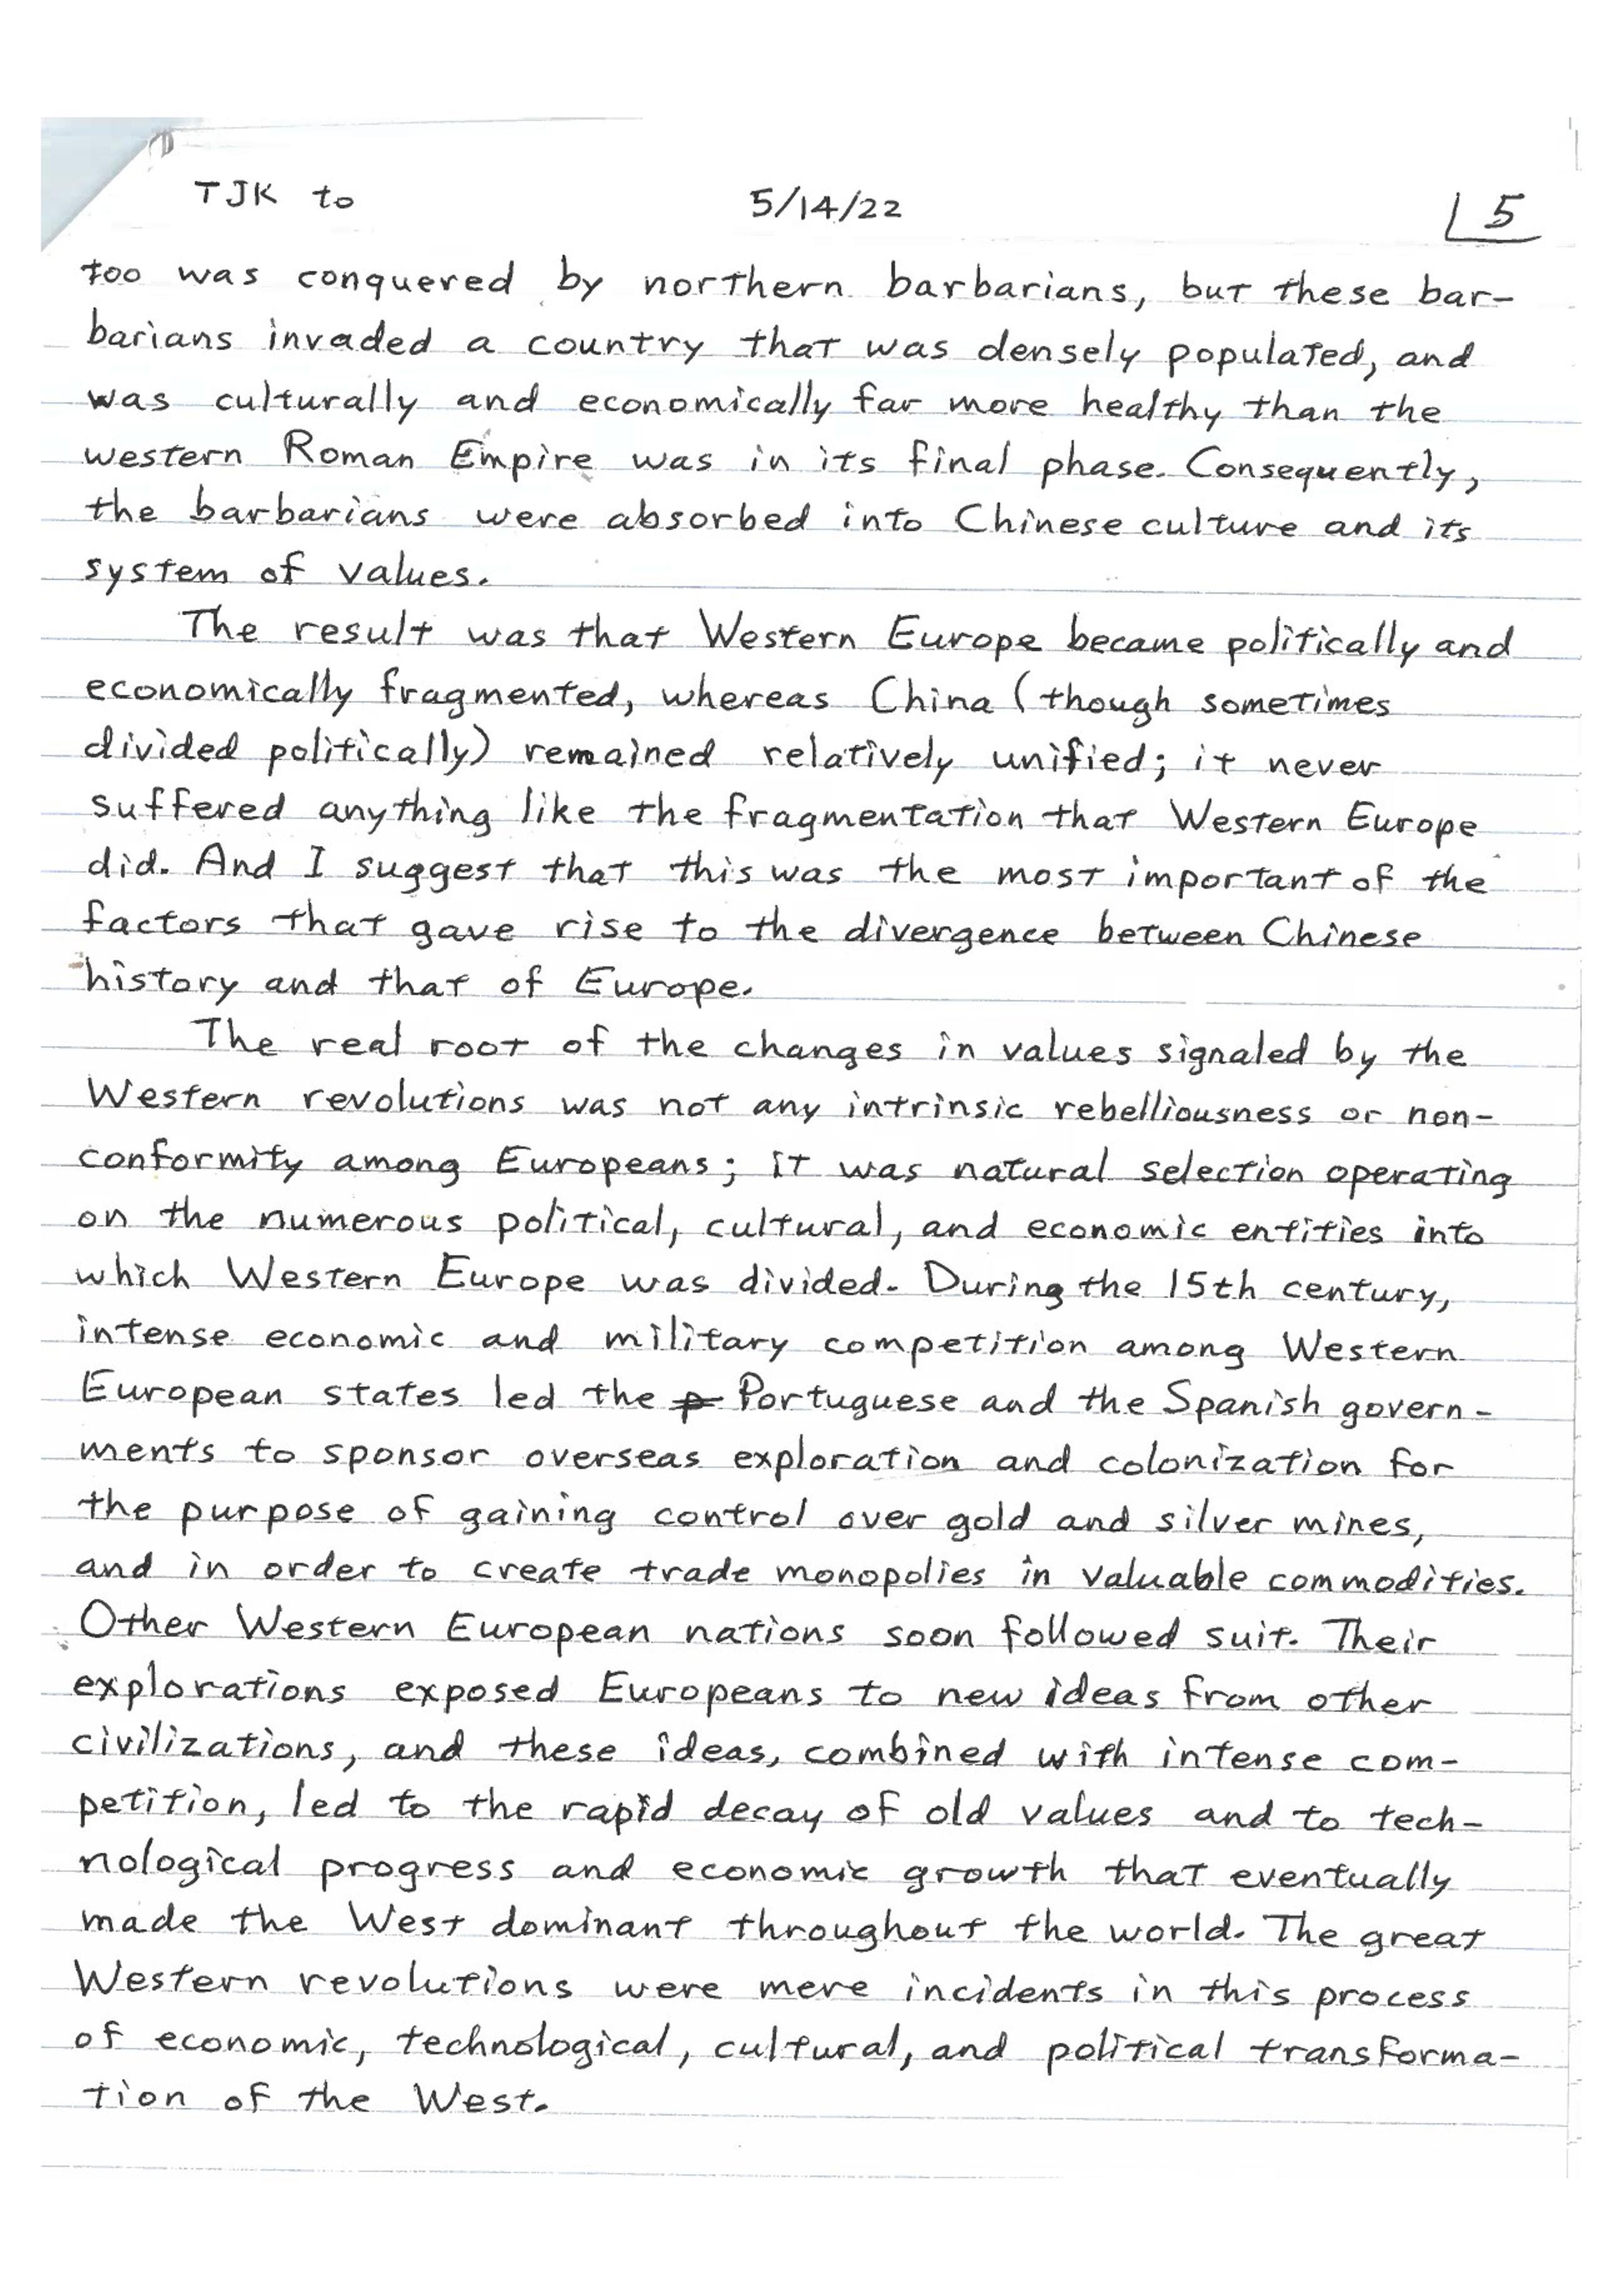 TJK to 5/14/22 5
too was conquered by northern barbarians, but these bar-
barians invaded a country that was densely populated, and
was culturally and economically far more healthy than the
western Roman Empire was in its final phase. Consequently,
the barbarians were absorbed into Chinese culture and its
system of values.
The result was that Western Europe became politically and
economically fragmented, whereas China (though sometimes
divided politically) remained relatively unified; it never
suffered anything like the fragmentation that Western Europe
did. And I suggest that this was the most important of the
factors that gave rise to the divergence between Chinese
history and that of Europe.
The real root of the changes in values signaled by the
Western revolutions was not any intrinsic rebelliousness or non-
conformity among Europeans; it was natural selection operating
on the numerous political, cultural, and economic entities into
which Western Europe was divided. During the 15th century,
intense economic and military competition among Western
European states led the p Portuguese and the Spanish govern-
ments to sponsor overseas exploration and colonization for
the purpose of gaining control over gold and silver mines,
and in order to create trade monopolies in valuable commodities.
Other Western European nations soon followed suit. Their
explorations exposed Europeans to new ideas from other
civilizations, and these ideas, combined with intense com-
petition, led to the rapid decay of old values and to tech-
nological progress and economic growth that eventually
made the West dominant throughout the world. The great
Western revolutions were mere incidents in this process
of economic, technological, cultural, and political transforma-
tion of the West.